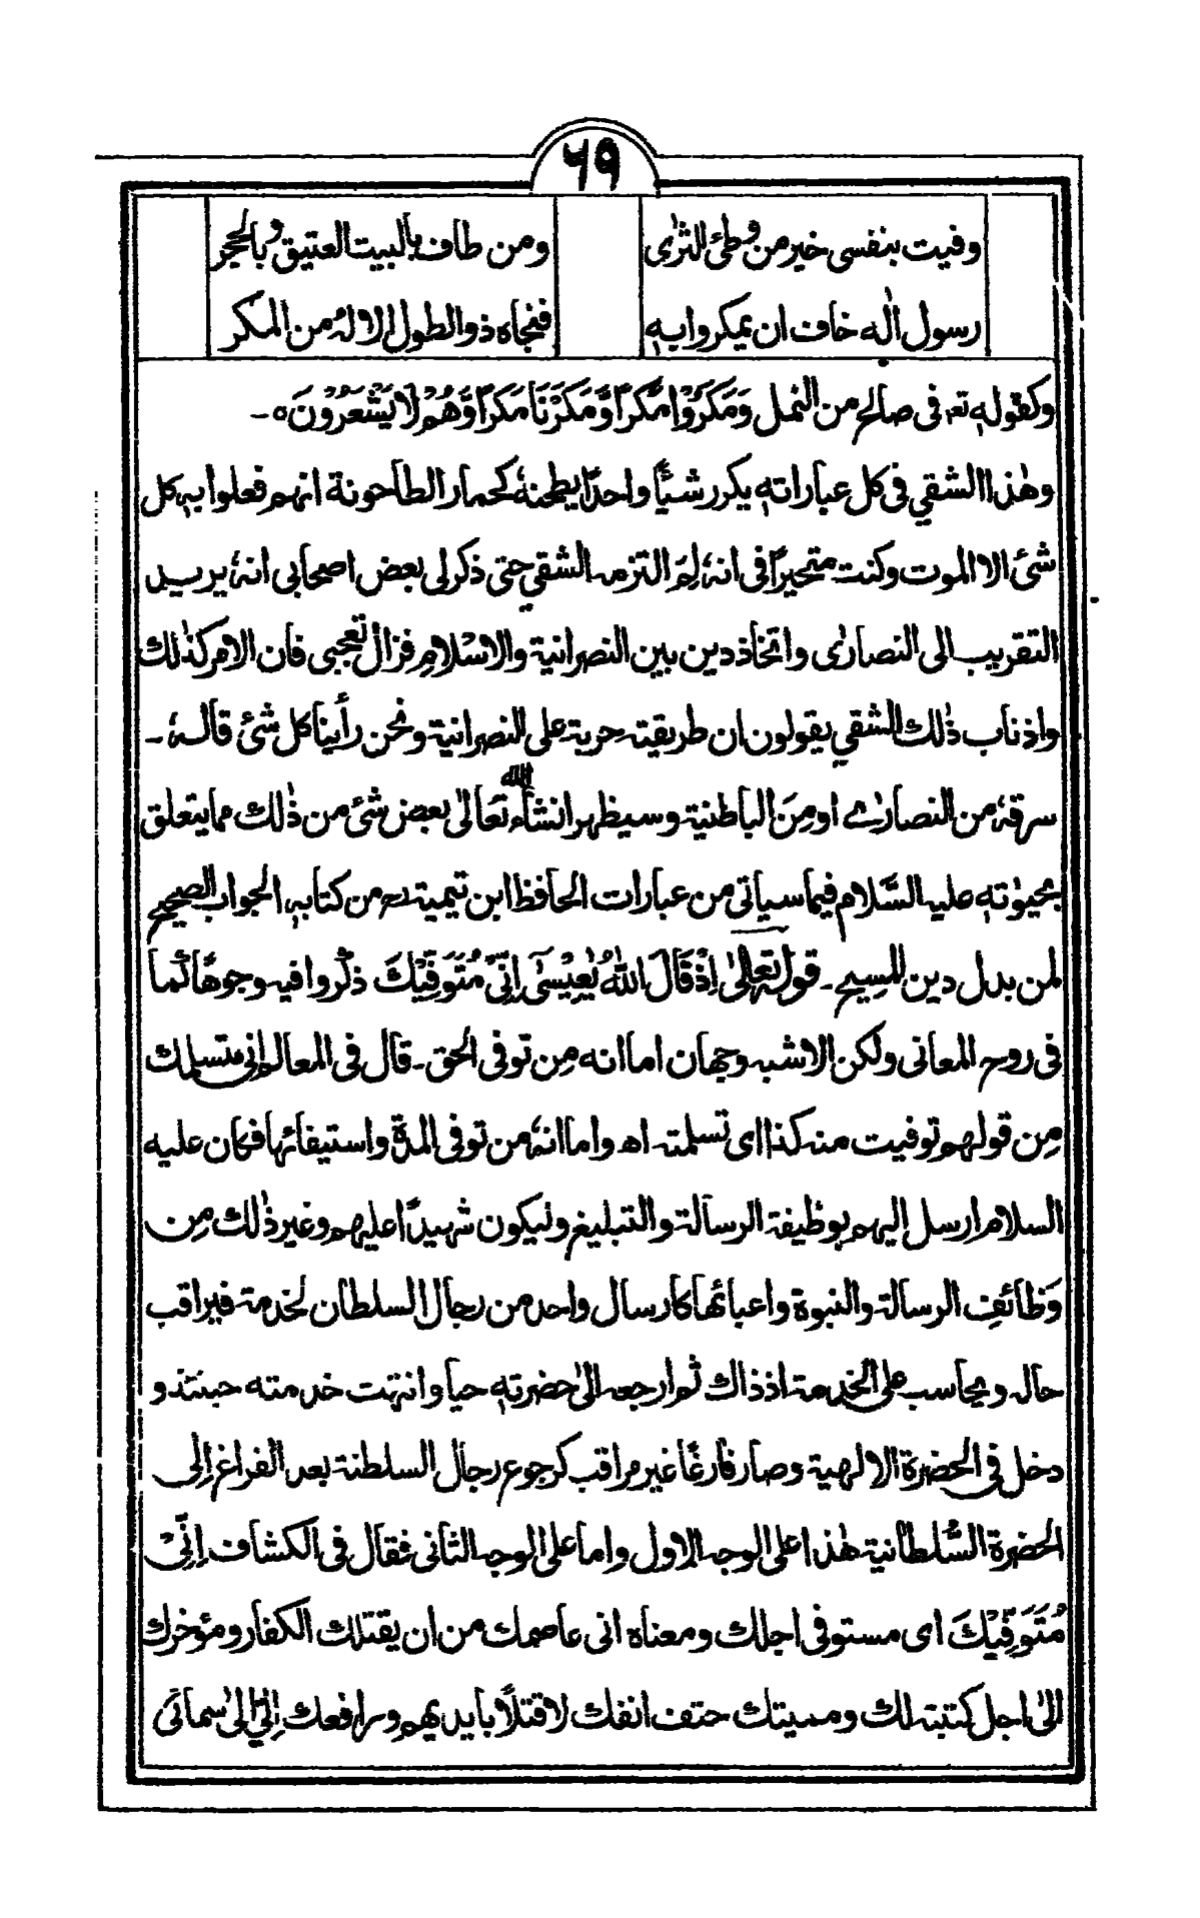 ٦٩
وقيت بنفسى خير من وطئ الثرٰى ومن طاف بالبيت العتيق وبالحجر
رسول الٰه خاف ان يمكروا به فنجاه ذو الطول الالٰه من المكر
وكقوله تعـ فى صالح من النمل وَمَكَرُوْا مَكْرًا وَّمَكَرْنَا مَكْرًا وَّهُمْ لَا يَشْعُرُوْنَ ه ـ
وهٰذا الشقي فى كل عباراته يكرر شيئًا واحدًا يطحنه كحمار الطاحونة انهم فعلوا به كل
شئ الا الموت وكنت متحيرًا فى انه لِمَ التزمه الشقي حتى ذكر لى بعض اصحابى انه يريد
التقريب الى النصارٰى واتخاذ دين بين النصرانية والاسْلام فزال تعجبى فان الامر كذٰلك
واذناب ذٰلك الشقي يقولون ان طريقته حربة على النصرانية ونحن رأينا كل شئ قاله ـ
سرقه من النصارٰے او مِنَ الباطنية وسيظهر انشاء الله تعالىٰ بعض شئ من ذٰلك مما يتعلق
بحيوٰته عليه السَّلام فيما سياتى من عبارات الحافظ ابن تيمية رحـ من كتابه الجواب الصحيح
لمن بدل دين المسيح ـ قوله تعالىٰ اِذْ قَالَ اللّٰهُ يٰعِيْسٰٓى اِنِّىْ مُتَوَفِّيْكَ ذكروا فيه وجوهًا كما
فى روح المعانى ولكن الاشبه وجهان اما انه مِن توفى الحق ـ قال فى المعالم إنى متسلمك
مِن قولهم توفيت منه كذا اى تسلمته اه واما انه من توفى المدة واستيفائها فكان عليه
السلام ارسل إليهم بوظيفة الرسالة والتبليغ وليكون شهيدًا عليهم وغير ذٰلك مِن
وَظائف الرسالة والنبوة واعبائها كارسال واحد من رجال السلطان لخدمة فيراقب
حاله ويحاسب على الخدمة اذ ذاك ثم ارجعه الىٰ حضرته حيا وانتهت خدمته حينئذ و
دخل فى الحضرة الالهية وصار فارغًا غير مراقب كرجوع رجال السلطنة بعد الفراغ إلى
الحضرة السُّلطانية هٰذا على الوجه الاول واما على الوجه الثانى فقال فى الكشاف اِنِّىْ
مُتَوَفِّيْكَ اى مستوفى اجلك ومعناه انى عاصمك من ان يقتلك الكفار ومؤخرك
الىٰ اجل كتبته لك ومميتك حتف انفك لا قتلًا بايديهم ورافعك إلىّ الىٰ سمائى